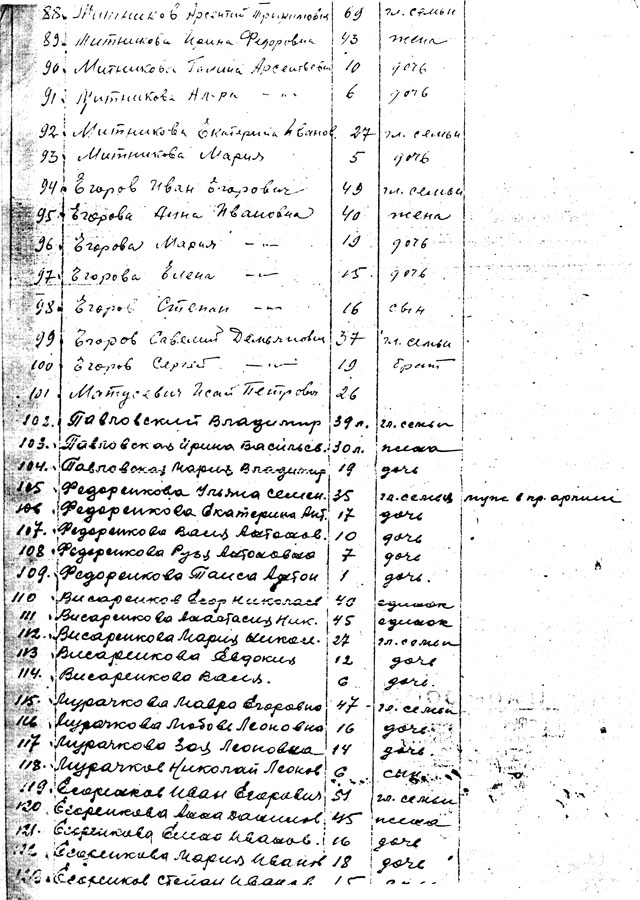 88. Митников Арсентий 69 гл. семьи
89. Митникова Федоровна 43 жена
90. Митникова Галина Арсентьевна 10 дочь
91. Митникова Ал-ра -"- 6 дочь
92. Митникова Екатерина Иванов. 27 гл. семьи
93. Митникова Мария 5 дочь
94. Егоров Иван Егорович 49 гл. семьи
95. Егорова Анна Ивановна 40 жена
96. Егорова Мария -"- 19 дочь
97. Егорова Елена -"- 15 дочь
98. Егоров Степан -"- 16 сын
99. Егоров Савелий Демьянович 37 гл. семьи
100. Егоров Сергей -"- 19 брат
101. Матусевич Исай Петрович 26
102. Павловский Владимир 39 л. гл. семьи
103. Павловская Ирина Васильев. 30 л. жена
104. Павловская Мария Владимир 19 дочь
105 Федоренкова Ульяна Семен. 35 гл. семьи муж в кр. армии
106 Федоренкова Екатерина Ант. 17 дочь
107. Федоренкова Антонов. 10 дочь
108 Федоренкова Антоновна 7 дочь
109. Федоренкова Таиса Антон 1 дочь.
110 Висаренков Егор Николаев 40
111 Висаренкова Анастасия Ник. 45
112. Висаренкова Мария Никол. 27 гл. семьи
113 Висаренкова Евдокия 12 дочь
114. Висаренкова 6 дочь
115. Мурачкова Мавра Егоровна 47 гл. семьи
116 Мурачкова Любовь Леоновна 16 дочь
117 Мурачкова Зоя Леоновна 14 дочь
118. Мурачков Николай Леонов 6 сын
119. Егоренков Иван Егорович 51 гл. семьи
120 Егоренкова Анна 45 жена
121. Егоренкова Иванов. 16 дочь
122. Егоренкова Мария Иванов 18 дочь
123. Егоренков Степан Иванов 15